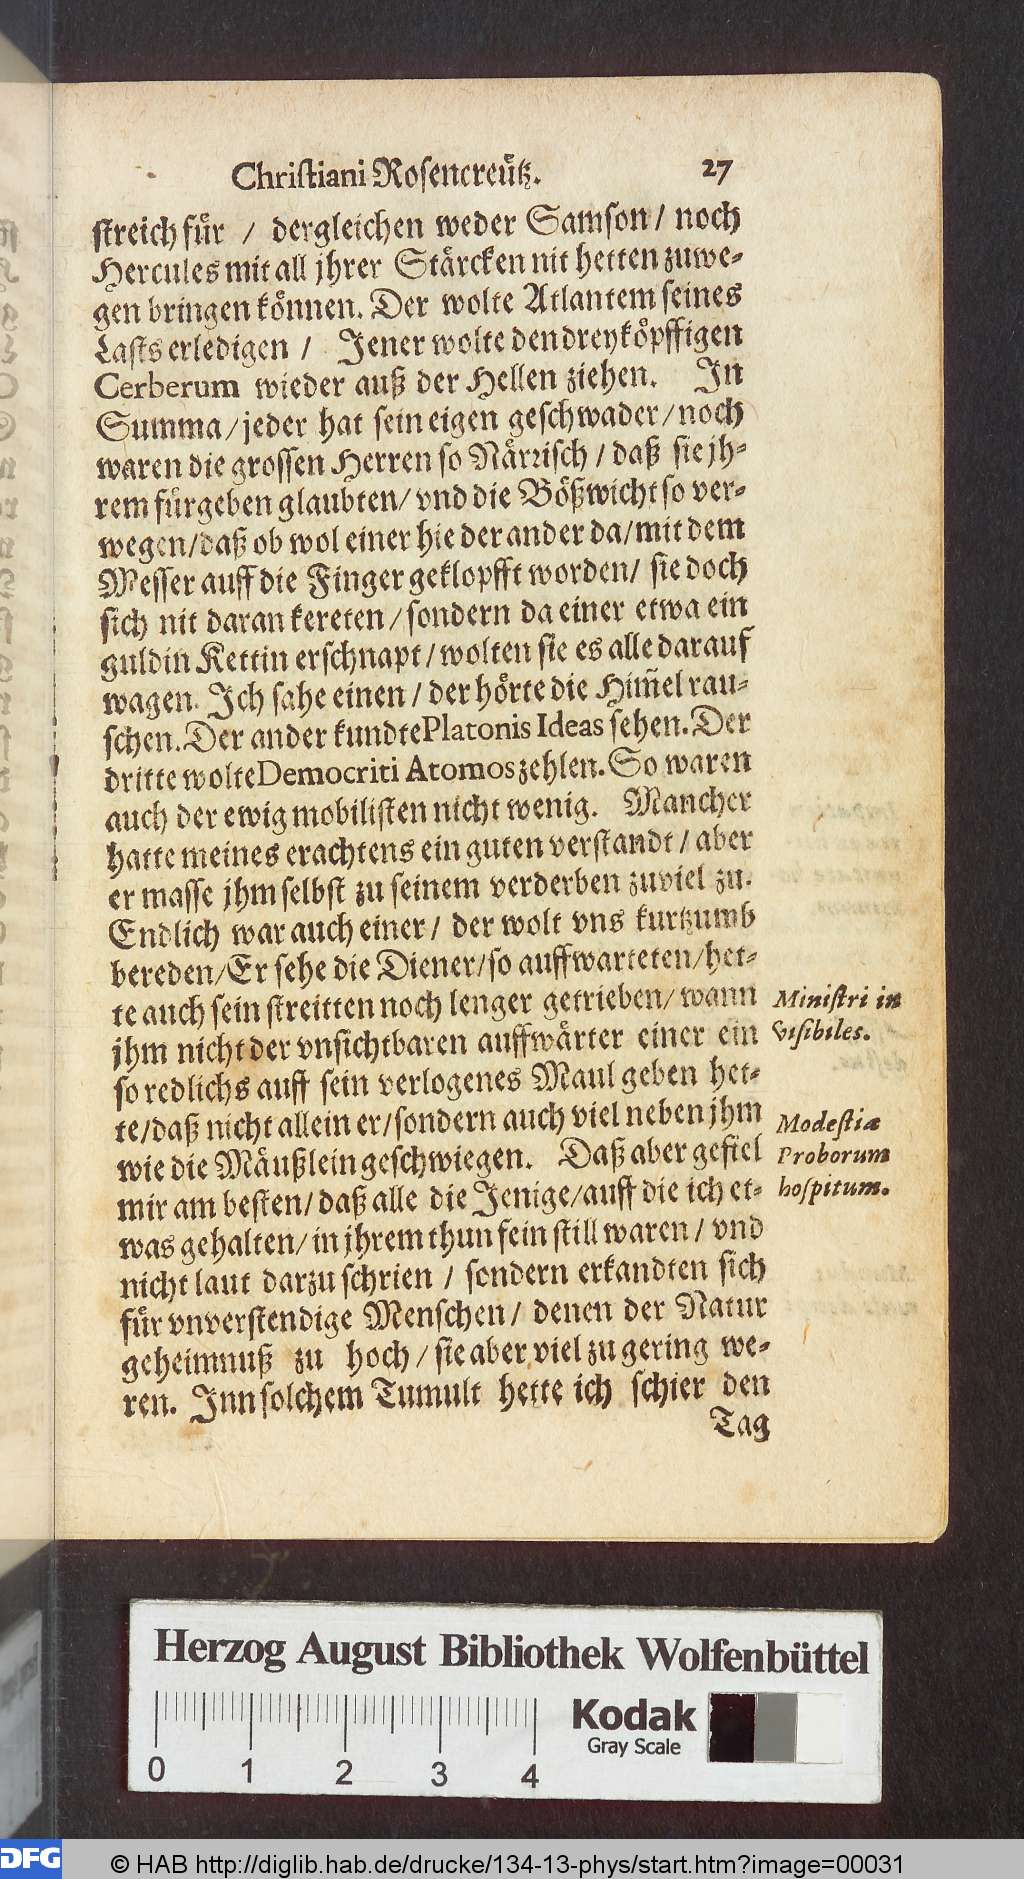 Christiani Rosencreütz. 27
streich für / dergleichen weder Samson / noch
Hercules mit all jhrer Stärcken nit hetten zuwe-
gen bringen können. Der wolte Atlantem seines
Lasts erledigen / Jener wolte den dreyköpffigen
Cerberum wieder auß der Hellen ziehen. In
Summa / jeder hat sein eigen geschwader / noch
waren die grossen Herren so Närrisch / daß sie jh-
rem fürgeben glaubten / vnd die Bößwicht so ver-
wegen / daß ob wol einer hie der ander da / mit dem
Messer auff die Finger geklopfft worden / sie doch
sich nit daran kereten / sondern da einer etwa ein
guldin Kettin erschnapt / wolten sie es alle darauf
wagen. Ich sahe einen / der hörte die Him̃el rau-
schen. Der ander kundte Platonis Ideas sehen. Der
dritte wolte Democriti Atomos zehlen. So waren
auch der ewig mobilisten nicht wenig. Mancher
hatte meines erachtens ein guten verstandt / aber
er masse jhm selbst zu seinem verderben zuviel zu.
Endlich war auch einer / der wolt vns kurtzumb
bereden / Er sehe die Diener / so auffwarteten / het-
te auch sein streitten noch lenger getrieben / wann
jhm nicht der vnsichtbaren auffwärter einer ein
so redlichs auff sein verlogenes Maul geben het-
te / daß nicht allein er / sondern auch viel neben jhm
wie die Mäußlein geschwiegen. Daß aber gefiel
mir am besten / daß alle die Jenige / auff die ich et-
was gehalten / in jhrem thun fein still waren / vnd
nicht laut darzu schrien / sondern erkandten sich
für vnverstendige Menschen / denen der Natur
geheimnuß zu hoch / sie aber viel zu gering we-
ren. Inn solchem Tumult hette ich schier den
Tag
Ministri in
visibiles.
Modestia
Proborum
hospitum.
Herzog August Bibliothek Wolfenbüttel
Kodak
Gray Scale
0 1 2 3 4
DFG © HAB http://diglib.hab.de/drucke/134-13-phys/start.htm?image=00031